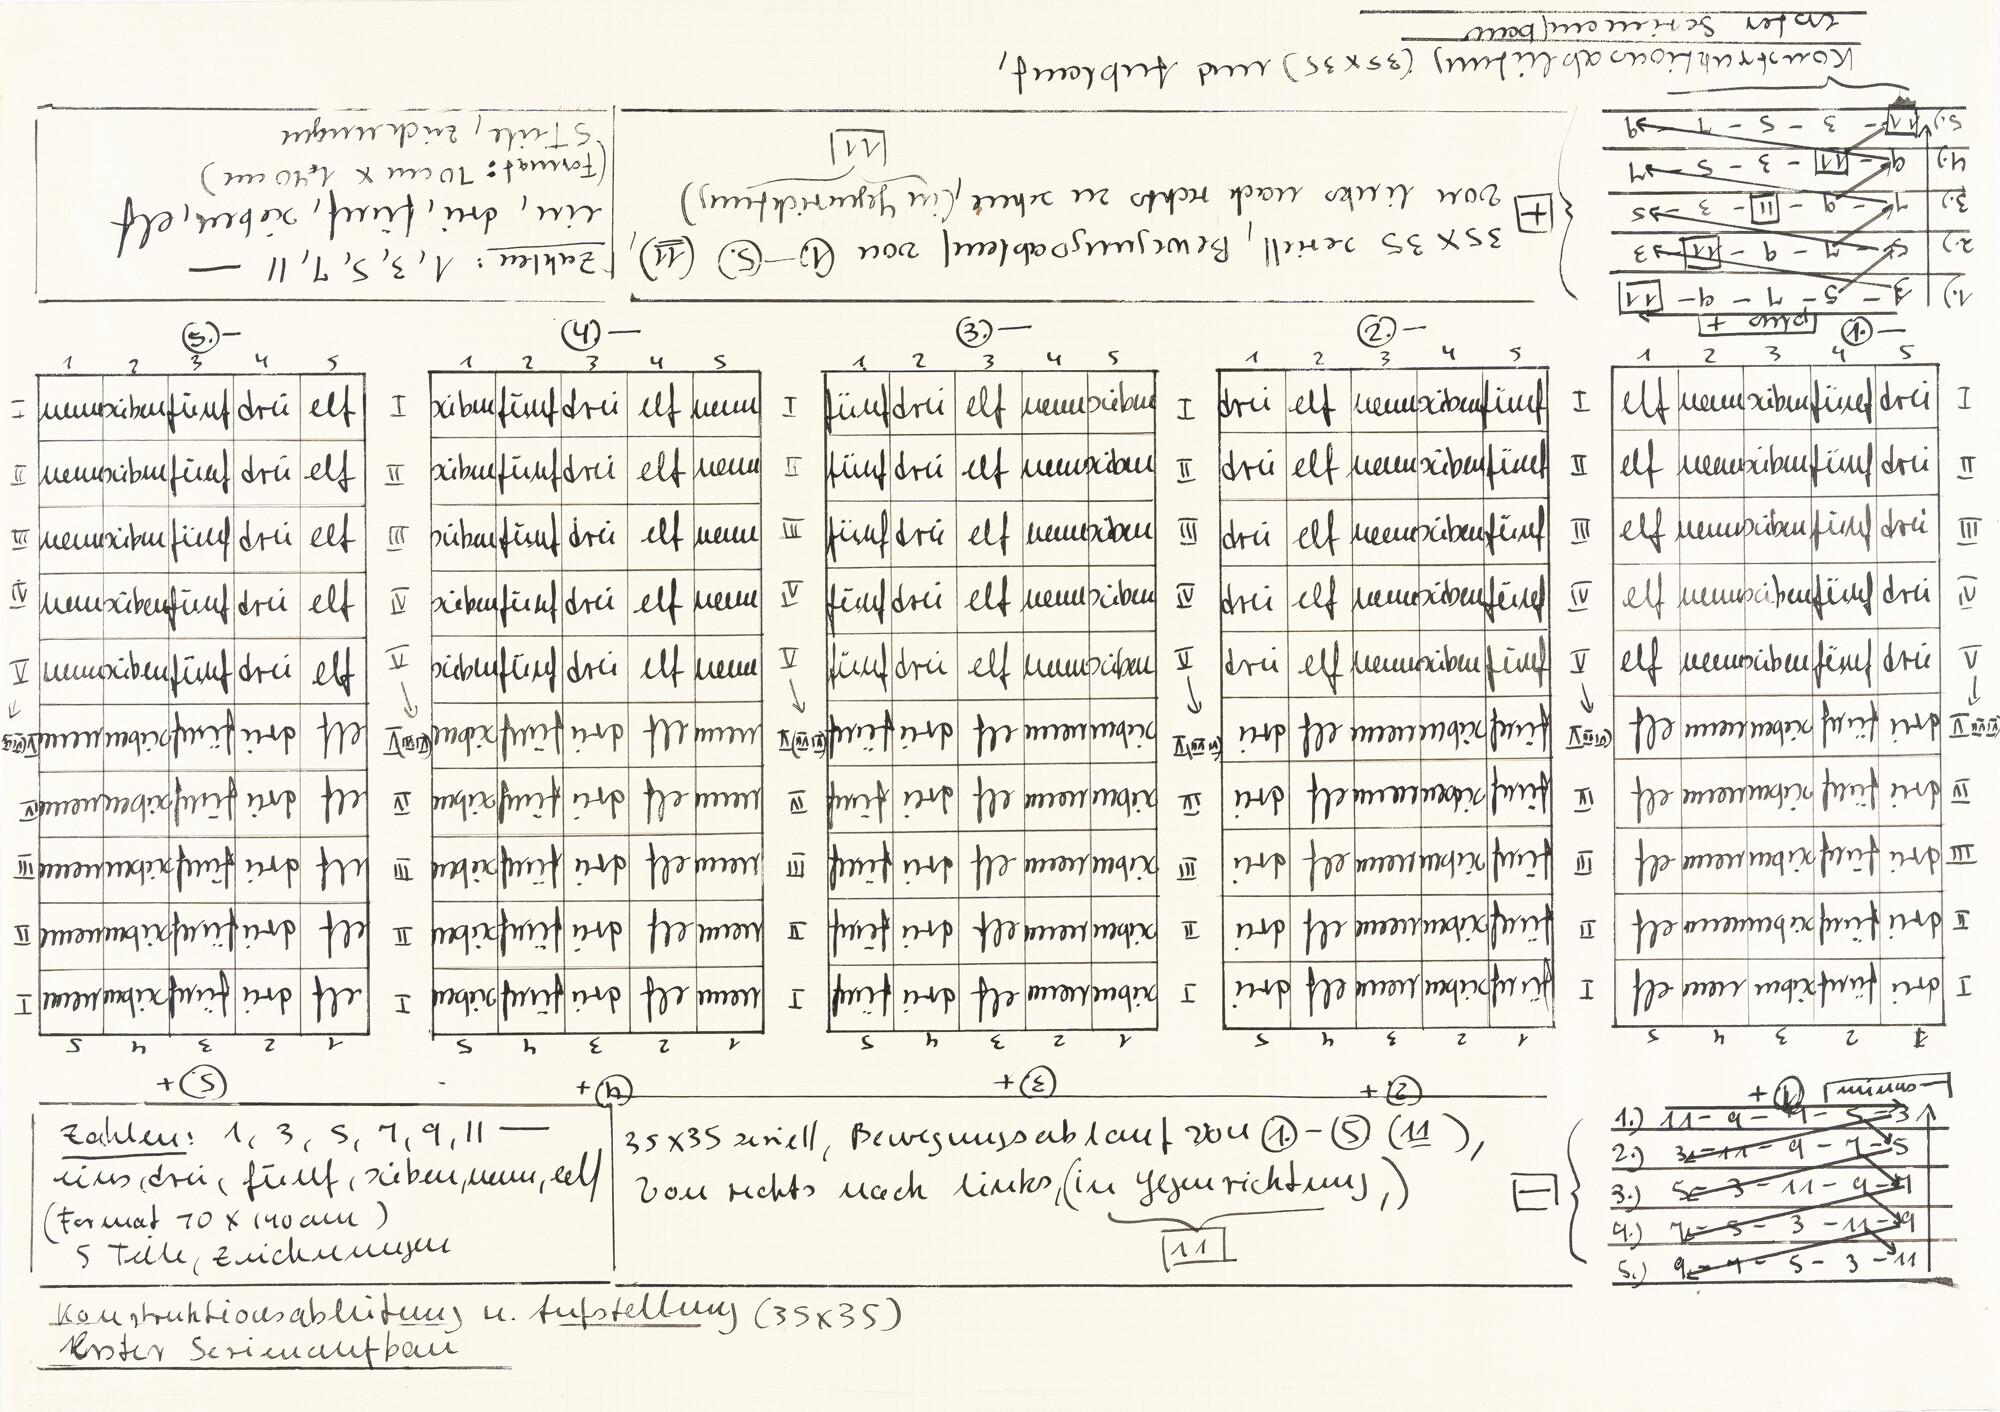 Konstruktionsableitung (35x35) und Ablauf,
Erster Serienaufbau
plus +
1.) 3 - 5 - 7 - 9 - 11
2.) 5 - 7 - 9 - 11 - 3
3.) 7 - 9 - 11 - 3 - 5
4.) 9 - 11 - 3 - 5 - 7
5.) 11 - 3 - 5 - 7 - 9
+
35x35 seriell, Bewegungsablauf von 1.) - 5.) (11),
von links nach rechts zu sehen, (in Gegenrichtung)
11
Zahlen: 1, 3, 5, 7, 11 —
ein, drei, fünf, sieben, elf
(Format: 70cm x 1,40cm)
5 Teile, Zeichnungen
5. – 4. – 3. – 2. – 1. –
1 2 3 4 5 1 2 3 4 5 1 2 3 4 5 1 2 3 4 5 1 2 3 4 5
I neun sieben fünf drei elf I sieben fünf drei elf neun I fünf drei elf neun sieben I drei elf neun sieben fünf I elf neun sieben fünf drei I
II neun sieben fünf drei elf II sieben fünf drei elf neun II fünf drei elf neun sieben II drei elf neun sieben fünf II elf neun sieben fünf drei II
III neun sieben fünf drei elf III sieben fünf drei elf neun III fünf drei elf neun sieben III drei elf neun sieben fünf III elf neun sieben fünf drei III
IV neun sieben fünf drei elf IV sieben fünf drei elf neun IV fünf drei elf neun sieben IV drei elf neun sieben fünf IV elf neun sieben fünf drei IV
V neun sieben fünf drei elf V sieben fünf drei elf neun V fünf drei elf neun sieben V drei elf neun sieben fünf V elf neun sieben fünf drei V
V neun sieben fünf drei elf V sieben fünf drei elf neun V fünf drei elf neun sieben V drei elf neun sieben fünf V elf neun sieben fünf drei V
IV neun sieben fünf drei elf IV sieben fünf drei elf neun IV fünf drei elf neun sieben IV drei elf neun sieben fünf IV elf neun sieben fünf drei IV
III neun sieben fünf drei elf III sieben fünf drei elf neun III fünf drei elf neun sieben III drei elf neun sieben fünf III elf neun sieben fünf drei III
II neun sieben fünf drei elf II sieben fünf drei elf neun II fünf drei elf neun sieben II drei elf neun sieben fünf II elf neun sieben fünf drei II
I neun sieben fünf drei elf I sieben fünf drei elf neun I fünf drei elf neun sieben I drei elf neun sieben fünf I elf neun sieben fünf drei I
5 4 3 2 1 5 4 3 2 1 5 4 3 2 1 5 4 3 2 1 5 4 3 2 1
+ 5. + 4. + 3. + 2. + 1.
Zahlen: 1, 3, 5, 7, 9, 11 —
eins, drei, fünf, sieben, neun, elf
(Format 70 x 140cm)
5 Teile, Zeichnungen
35x35 seriell, Bewegungsablauf von 1. - 5 (11),
von rechts nach links, (in Gegenrichtung,)
11
–
minus –
1.) 11 - 9 - 7 - 5 - 3
2.) 3 - 11 - 9 - 7 - 5
3.) 5 - 3 - 11 - 9 - 7
4.) 7 - 5 - 3 - 11 - 9
5.) 9 - 7 - 5 - 3 - 11
Konstruktionsableitung u. Aufstellung (35x35)
Erster Serienaufbau